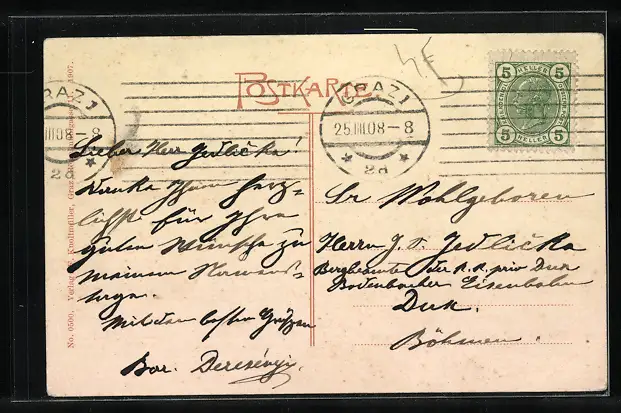 POSTKARTE
GRAZ 1
25.III.08-8
2a
GRAZ 1
III.08-8
2a
5 HELLER 5
5 HELLER 5
Lieber Herr Jedlička!
Danke Ihnen herz-
lichst für Ihre
guten Wünsche zu
meinem Namens-
tage.
Mit den besten Grüßen
Bar. Dercsényi
Sr Wohlgeboren
Herrn J. v. Jedlička
Bergbeamte der K. K. priv Dux
Bodenbacher Eisenbahn
Dux.
Böhmen.
No. 0500. Verlag Knollmüller, Graz 1907.